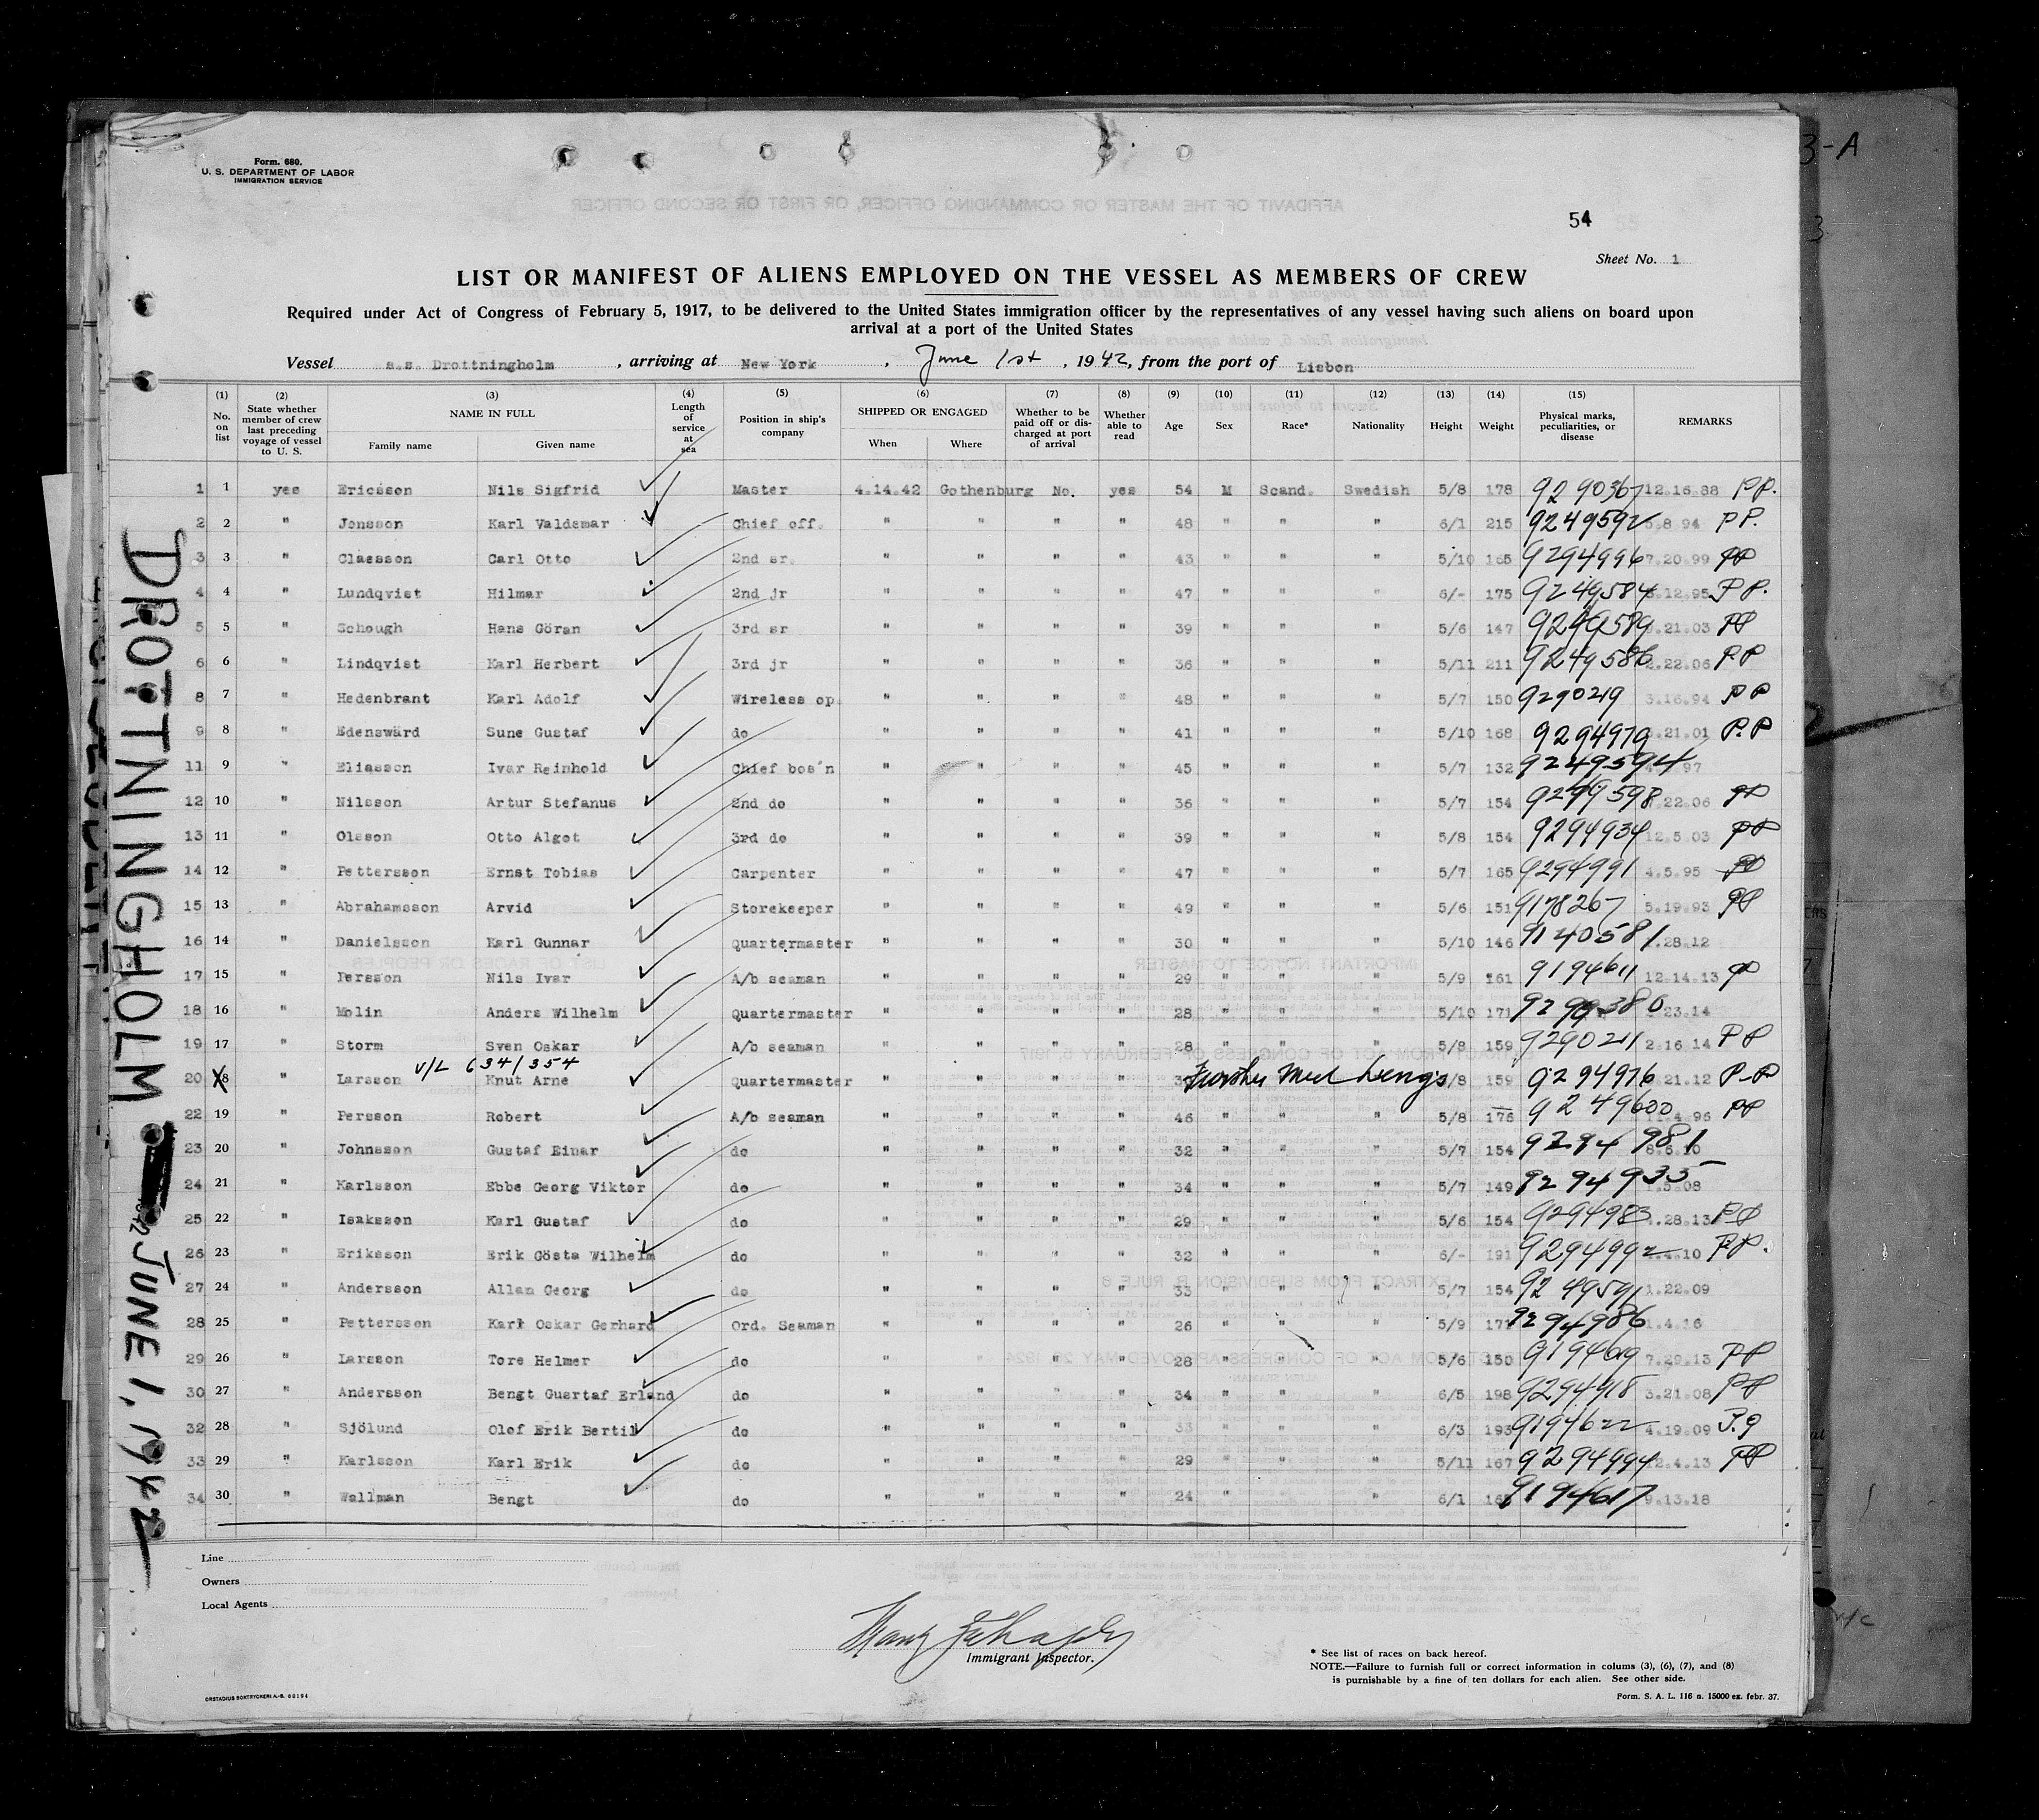 Form. 680.
U. S. DEPARTMENT OF LABOR
IMMIGRATION SERVICE
3-A
54
Sheet No. 1
LIST OR MANIFEST OF ALIENS EMPLOYED ON THE VESSEL AS MEMBERS OF CREW
Required under Act of Congress of February 5, 1917, to be delivered to the United States immigration officer by the representatives of any vessel having such aliens on board upon
arrival at a port of the United States
Vessel s.s. Drottningholm, arriving at New York, June 1st, 1942, from the port of Lisbon
(1) No. on list (2) State whether member of crew last preceding voyage of vessel to U. S. (3) NAME IN FULL Family name Given name (4) Length of service at sea (5) Position in ship's company (6) SHIPPED OR ENGAGED When Where (7) Whether to be paid off or discharged at port of arrival (8) Whether able to read (9) Age (10) Sex (11) Race* (12) Nationality (13) Height (14) Weight (15) Physical marks, peculiarities, or disease REMARKS
1 1 yes Ericsson Nils Sigfrid Master 4.14.42 Gothenburg No. yes 54 M Scand. Swedish 5/8 178 9290367 12.16.88 PP.
2 2 " Jonsson Karl Valdemar Chief off. " " " " 48 " " " 6/1 215 9249592 .8.94 PP.
3 3 " Claesson Carl Otto 2nd sr. " " " " 43 " " " 5/10 165 9294996 7.20.99 PP
4 4 " Lundqvist Hilmar 2nd jr " " " " 47 " " " 6/- 175 9249584 .12.95 PP.
5 5 " Schough Hans Göran 3rd sr " " " " 39 " " " 5/6 147 9249589 .21.03 PP
6 6 " Lindqvist Karl Herbert 3rd jr " " " " 36 " " " 5/11 211 9249586 .22.06 PP
8 7 " Hedenbrant Karl Adolf Wireless op. " " " " 48 " " " 5/7 150 9290219 3.16.94 PP
9 8 " Edenswärd Sune Gustaf do " " " " 41 " " " 5/10 168 9294979 .21.01 P.P
11 9 " Eliasson Ivar Reinhold Chief bos'n " " " " 45 " " " 5/7 132 9249594 97
12 10 " Nilsson Artur Stefanus 2nd do " " " " 36 " " " 5/7 154 9249598 .22.06 PP
13 11 " Olsson Otto Algot 3rd do " " " " 39 " " " 5/8 154 9294934 12.5.03 PP
14 12 " Pettersson Ernst Tobias Carpenter " " " " 47 " " " 5/7 165 9294991 4.5.95 PP
15 13 " Abrahamsson Arvid Storekeeper " " " " 49 " " " 5/6 151 9178267 5.19.93 PP
16 14 " Danielsson Karl Gunnar Quartermaster " " " " 30 " " " 5/10 146 9140581 .28.12
17 15 " Persson Nils Ivar A/b seaman " " " " 29 " " " 5/9 161 9194611 12.14.13 PP
18 16 " Molin Anders Wilhelm Quartermaster " " " " 28 " " " 5/10 171 .23.14
19 17 " Storm Sven Oskar A/b seaman " " " " 28 " " " 5/8 159 9290211 2.16.14 PP
v/L 634/354
20 18 " Larsson Knut Arne Quartermaster " " " " 5/8 159 9294976 .21.12 P-P
22 19 " Persson Robert A/b seaman " " " " 46 " " " 5/8 176 9249600 .4.96 PP
23 20 " Johnsson Gustaf Einar do " " " " 32 " " " 5/7 154 9294981 8.6.10
24 21 " Karlsson Ebbe Georg Viktor do " " " " 34 " " " 5/7 149 9294935 .08
25 22 " Isaksson Karl Gustaf do " " " " 29 " " " 5/6 154 9294983 .28.13 PP
26 23 " Eriksson Erik Gösta Wilhelm do " " " " 32 " " " 6/- 191 9294992 .4.10 PP.
27 24 " Andersson Allan Georg do " " " " 33 " " " 5/7 154 9249591 1.22.09
28 25 " Pettersson Karl Oskar Gerhard Ord. Seaman " " " " 26 " " " 5/9 171 9294986 1.4.16
29 26 " Larsson Tore Helmer do " " " " 28 " " " 5/6 150 9194619 7.29.13 PP
30 27 " Andersson Bengt Gustaf Erland do " " " " 34 " " " 6/5 198 9294918 3.21.08 PP
32 28 " Sjölund Olof Erik Bertil do " " " " 33 " " " 6/3 193 9194622 4.19.09 P.P
33 29 " Karlsson Karl Erik do " " " " 29 " " " 5/11 167 9294994 2.4.13 PP
34 30 " Wallman Bengt do " " " " 24 " " " 6/1 9194617 9.13.18
DROTTNINGHOLM JUNE 1, 1942
Line
Owners
Local Agents
Immigrant Inspector.
* See list of races on back hereof.
NOTE.—Failure to furnish full or correct information in colums (3), (6), (7), and (8)
is purnishable by a fine of ten dollars for each alien. See other side.
Form. S. A. L. 116 n. 15000 ex. febr. 37.